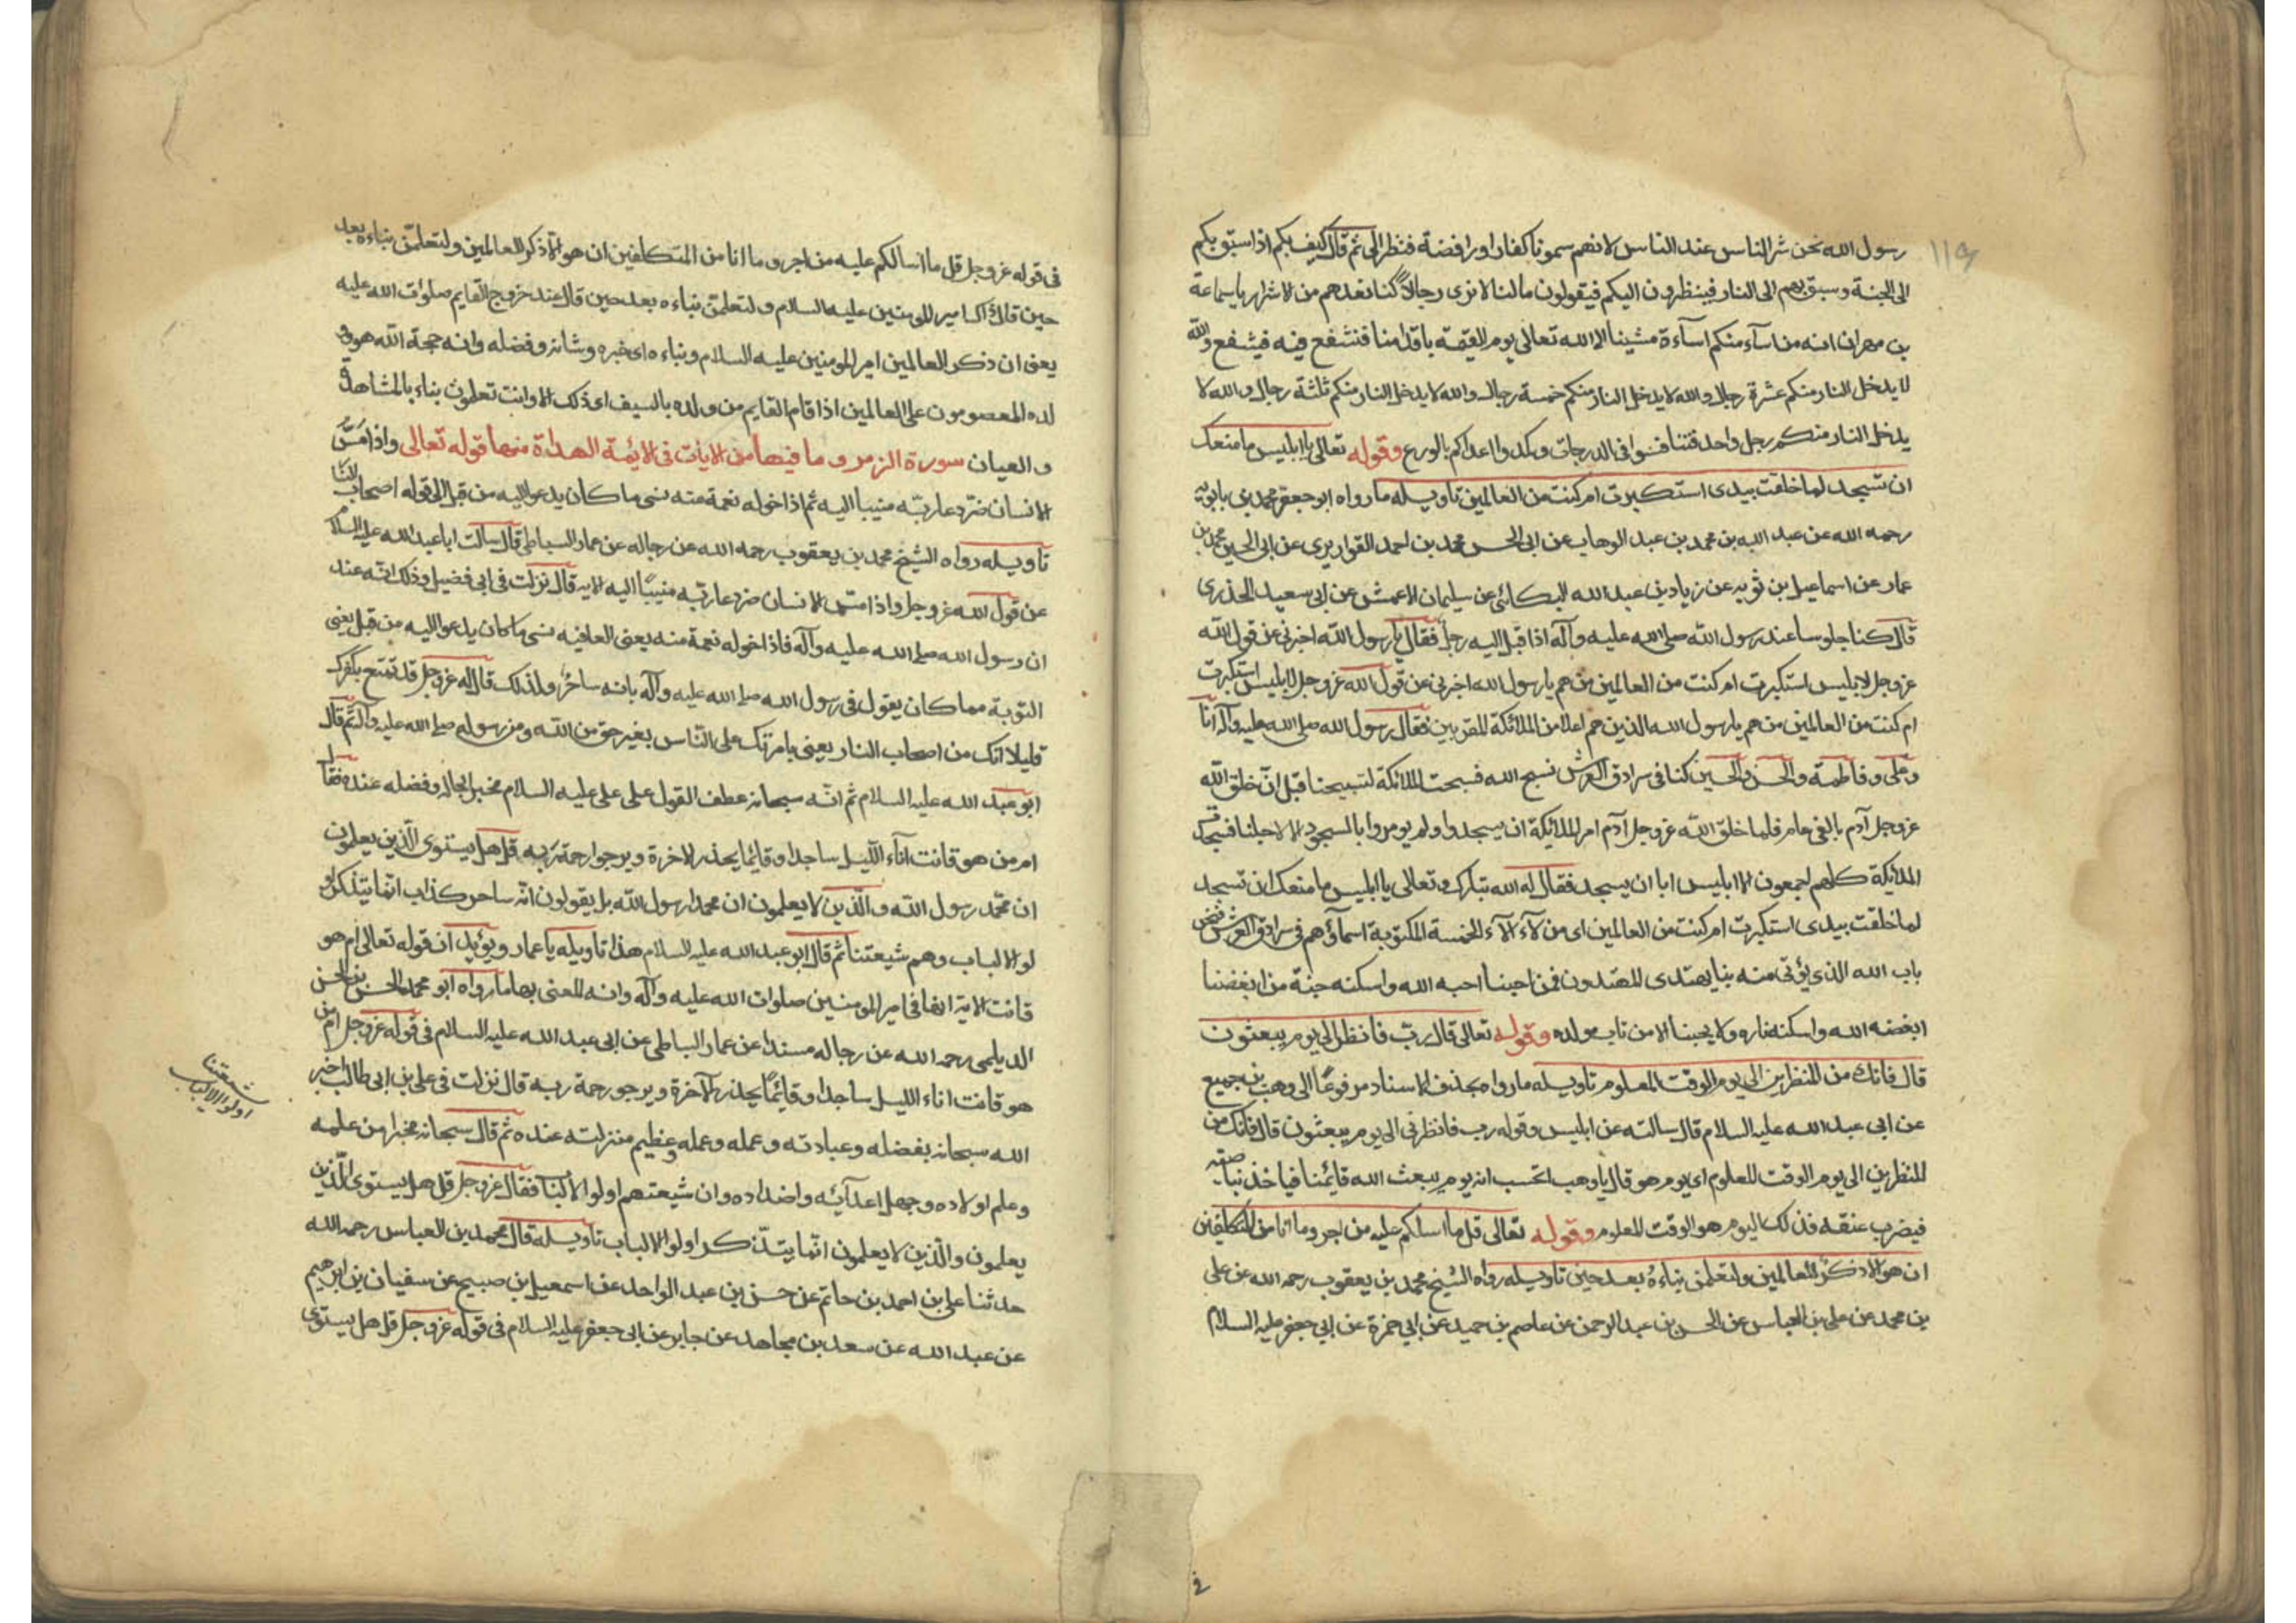 ١١٩
رسول الله نحن شر الناس عند الناس لانهم سمونا كفارا ورافضة فنظر الى ثم قال كيف بكم اذا سيق بكم
الى الجنة وسيق بهم الى النار فينظرون اليكم فيقولون مالنا لا نرى رجالا كنا نعدهم من الاشرار يا سماعة
بن مهران انه من اسآء منكم اسآءة مشينا الى الله تعالى يوم القيمة باقدامنا فنشفع فيه فيشفع والله
لا يدخل النار منكم عشرة رجال والله لا يدخل النار منكم خمسة رجال والله لا يدخل النار منكم ثلثة رجال والله لا
يدخل النار منكم رجل واحد فتنافسوا فى الدرجات وكمدوا اعداكم بالورع وقوله تعالى يا ابليس ما منعك
ان تسجد لما خلقت بيدى استكبرت ام كنت من العالمين تاويله ما رواه ابو جعفر محمد بن بابويه
رحمه الله عن عبد الله بن محمد بن عبد الوهاب عن ابى الحسن محمد بن احمد القواريرى عن ابى الحسين محمد بن
عمار عن اسماعيل بن ثويه عن زياد بن عبد الله البكائى عن سليمان الاعمش عن ابى سعيد الخدرى
قال كنا جلوسا عند رسول الله صلى الله عليه وآله اذا قبل اليه رجل فقال يا رسول الله اخبرنى عن قول الله
عز وجل لابليس استكبرت ام كنت من العالمين من هم يا رسول الله اخبرنى عن قول الله عز وجل لابليس استكبرت
ام كنت من العالمين من هم يا رسول الله الذين هم اعلا من الملائكة المقربين فقال رسول الله صلى الله عليه وآله انا
وعلى وفاطمة والحسن والحسين كنا فى سرادق العرش نسبح الله فسبحت الملائكة لتسبيحنا قبل ان خلق الله
عز وجل آدم بالفى عام فلما خلق الله عز وجل آدم امر الملائكة ان يسجدوا ولم يومروا بالسجود الا لاجلنا فسجدت
الملائكة كلهم اجمعون الا ابليس ابا ان يسجد فقال له الله تبارك وتعالى يا ابليس ما منعك ان تسجد
لما خلقت بيدى استكبرت ام كنت من العالمين اى من لآء الآء الخمسة المكتوبة اسمآؤهم فى سرادق العرش فنحن
باب الله الذى يؤتى منه بنا يهتدى المهتدون فمن احبنا احبه الله واسكنه جنة من ابغضنا
ابغضه الله واسكنه ناره ولا يحبنا الا من تاب مولده وقوله تعالى قال رب فانظرنى الى يوم يبعثون
قال فانك من المنظرين الى يوم الوقت المعلوم تاويله ما رواه بحذف الاسناد مرفوعا الى وهب بن جميع
عن ابى عبد الله عليه السلام قال سالته عن ابليس وقوله رب فانظرنى الى يوم يبعثون قال فانك من
المنظرين الى يوم الوقت المعلوم اى يوم هو قال يا وهب اتحسب انه يوم يبعث الله قايمنا فياخذ بناصيته
فيضرب عنقه فذلك اليوم هو الوقت المعلوم وقوله تعالى قل ما اسالكم عليه من اجر وما انا من المتكلفين
ان هو الا ذكر للعالمين ولتعلمن نباءه بعد حين تاويله رواه الشيخ محمد بن يعقوب رحمه الله عن على
بن محمد عن على بن العباس عن الحسن بن عبد الرحمن عن عاصم بن حميد عن ابى حمزة عن ابى جعفر عليه السلام
فى قوله عز وجل قل ما اسالكم عليه من اجر وما انا من المتكلفين ان هو الا ذكر للعالمين ولتعلمن نباءه بعد
حين قال ذاك امير المومنين عليه السلام ولتعلمن نباءه بعد حين قال عند خروج القايم صلوات الله عليه
يعنى ان ذكر العالمين امير المومنين عليه السلام ونباءه اى خبره وشانه وفضله وانه حجة الله هو و
لده المعصومون على العالمين اذا قام القايم من ولده بالسيف اى ذلك الاوانت تعلمون بناء بالمشاهدة
والعيان سورة الزمر وما فيها من الايات فى الايمة الهداة منها قوله تعالى واذا مس
الانسان ضر دعا ربه منيبا اليه ثم اذا خوله نعمة منه نسى ما كان يدعو اليه من قبل الى قوله اصحاب النار
تاويله رواه الشيخ محمد بن يعقوب رحمه الله عن رجاله عن عمار الساباطى قال سالت ابا عبد الله عليه السلام
عن قول الله عز وجل واذا مس الانسان ضر دعا ربه منيبا اليه الايه قال نزلت فى ابى فضيل وذلك انه عند
ان رسول الله صلى الله عليه وآله فاذا خوله نعمة منه يعنى العافيه نسى ما كان يدعو اليه من قبل يعنى
التوبة مما كان يقول فى رسول الله صلى الله عليه وآله بانه ساحر ولذلك قال له عز وجل قد تمتع بكفرك
قليلا انك من اصحاب النار يعنى بامرتك على الناس بغير حق من الله ومن رسوله صلى الله عليه وآله ثم قال
ابو عبد الله عليه السلام ثم انه سبحانه عطف القول على على عليه السلام مخبرا بحاله وفضله عنده فقال
امن هو قانت آنآء الليل ساجدا وقائما يحذر الاخرة ويرجوا رحمة ربه قل هل يستوى الذين يعلمون
ان محمد رسول الله والذين لا يعلمون ان محمدا رسول الله بل يقولون انه ساحر كذاب انما يتذكر او
لو الالباب وهم شيعتنا ثم قال ابو عبد الله عليه السلام هذا تاويله يا عمار ويؤيد ان قوله تعالى ام هو
قانت الاية انها فى امير المومنين صلوات الله عليه وآله وانه المعنى بها ما رواه ابو محمد الحسن بن الحسن
الديلمى رحمه الله عن رجاله مسندا عن عمار الساباطى عن ابى عبد الله عليه السلام فى قوله عز وجل ام من
هو قانت اناء الليل ساجدا وقائما يحذر الآخرة ويرجو رحمة ربه قال نزلت فى على بن ابى طالب اخبر
الله سبحانه بفضله وعبادته وعمله وعمله وعظيم منزلته عنده ثم قال سبحانه مخبرا من علمه
وعلم اولاده وجهل اعدآئه واضداده وان شيعتهم اولوا الالباب فقال عز وجل قل هل يستوى الذين
يعلمون والذين لا يعلمون انما يتذكر اولوا الالباب تاويله قال محمد بن العباس رحمه الله
حدثنا على بن احمد بن حاتم عن حسن بن عبد الواحد عن اسمعيل بن صبيح عن سفيان بن ابرهيم
عن عبد الله عن سعد بن مجاهد عن جابر عن ابى جعفر عليه السلام فى قوله عز وجل قل هل يستوى
شيعتنا
اولوا الالباب